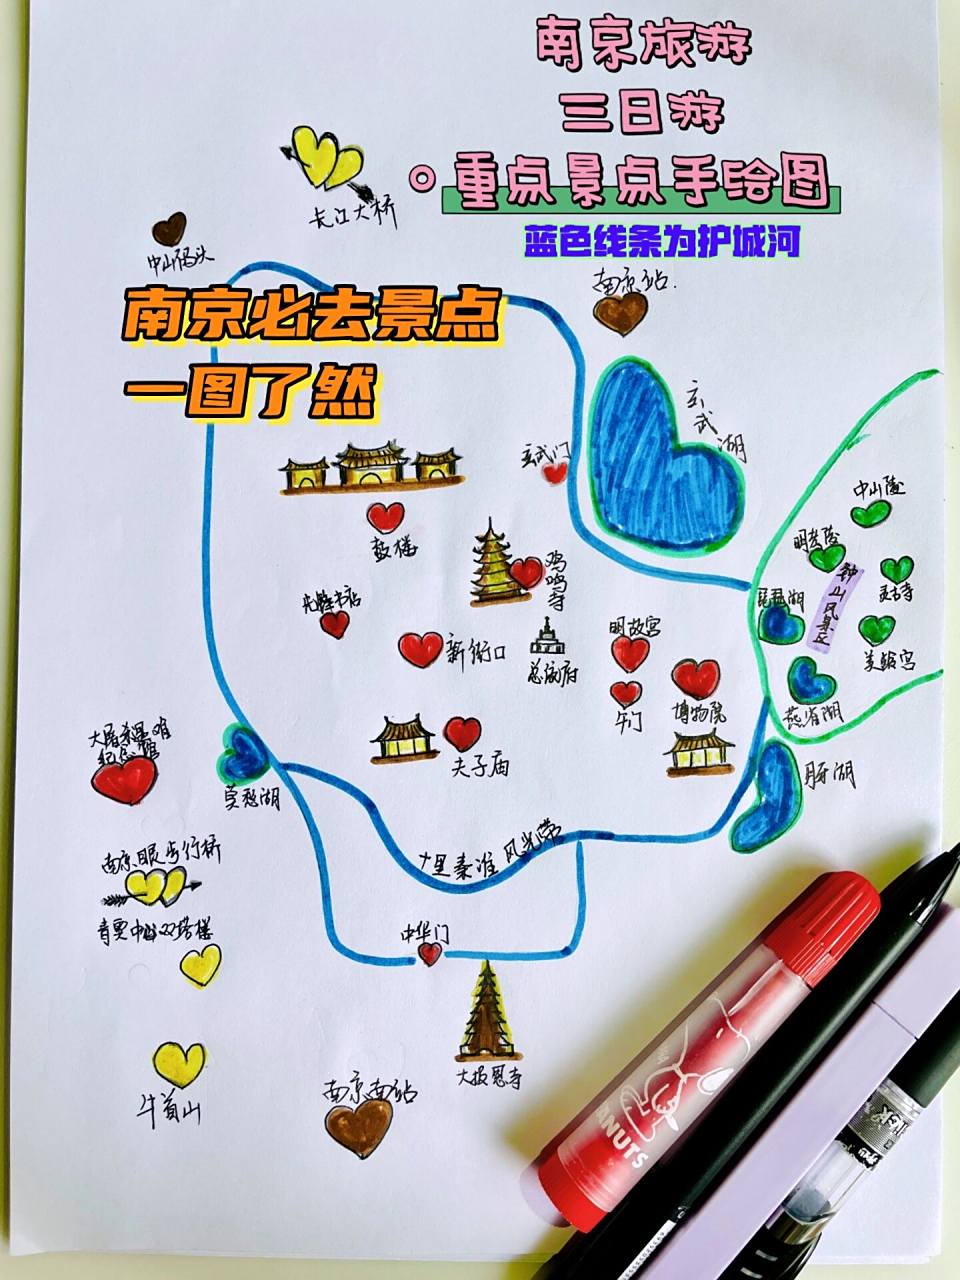 南京旅游
三日游
重点景点手绘图
蓝色线条为护城河
长江大桥
中山码头
南京站.
南京必去景点
一图了然
玄武湖
玄武门
中山陵
鼓楼
明孝陵
鸡鸣寺
钟山风景区
灵谷寺
琵琶湖
先锋书店
新街口
总统府
明故宫
美龄宫
午门
博物院
燕雀湖
大屠杀遇难
纪念馆
夫子庙
莫愁湖
月牙湖
十里秦淮风光带
南京眼步行桥
青奥中心双塔楼
中华门
大报恩寺
牛首山
南京南站
PEANUTS